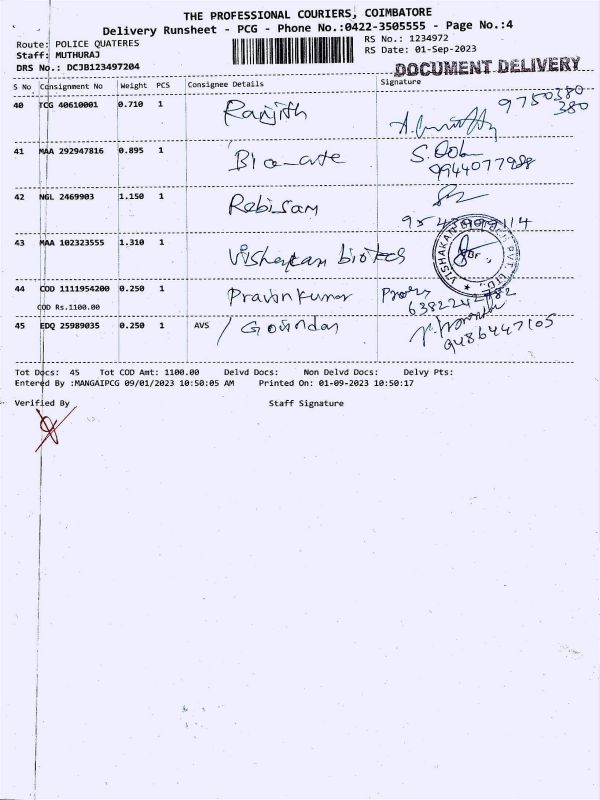 THE PROFESSIONAL COURIERS, COIMBATORE
Delivery Runsheet - PCG - Phone No.:0422-3505555 - Page No.:4
Route: POLICE QUATERES
RS No.: 1234972
Staff: MUTHURAJ
RS Date: 01-Sep-2023
DRS No.: DCJB123497204
DOCUMENT DELIVERY
S No Consignment No Weight PCS Consignee Details Signature
40 TCG 40610001 0.710 1 Ranjith 9750380
380
41 MAA 292947816 0.895 1
42 NGL 2469903 1.150 1 Rabisam
43 MAA 102323555 1.310 1 Vishakan biotes
VISHAKAN PVT. LTD.
44 COD 1111954200 0.250 1 Pravinkumar
COD Rs.1100.00
45 EDQ 25989035 0.250 1 AVS / Govindan
9486447105
Tot Docs: 45 Tot COD Amt: 1100.00 Delvd Docs: Non Delvd Docs: Delvy Pts:
Entered By :MANGAIPCG 09/01/2023 10:50:05 AM Printed On: 01-09-2023 10:50:17
Verified By Staff Signature